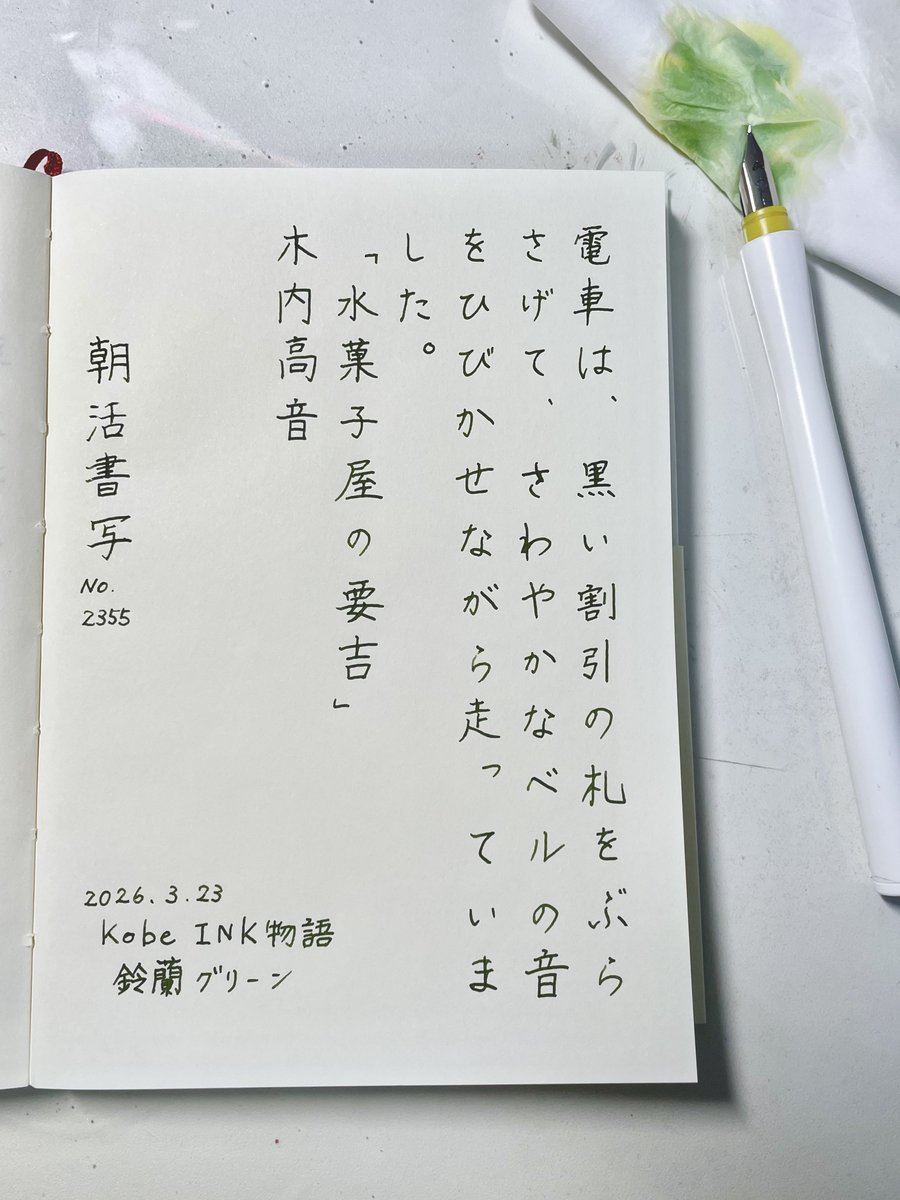 電車は、黒い割引の札をぶら
さげて、さわやかなベルの音
をひびかせながら走っていま
した。
「水菓子屋の要吉」
木内高音
朝活書写
No.
2355
2026.3.23
Kobe INK物語
鈴蘭グリーン